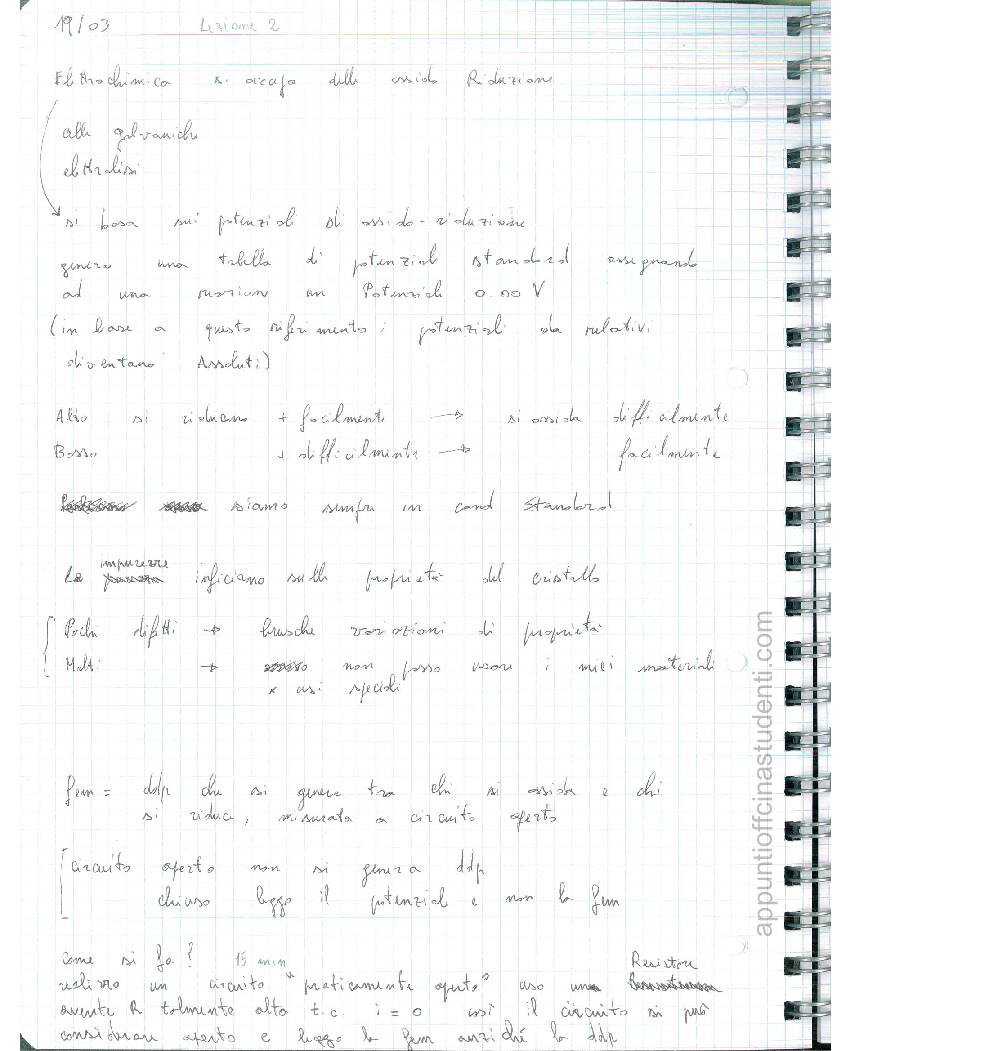 19/03 Lezione 2
Elettrochimica si occupa delle ossido Riduzione
celle galvaniche
elettrolisi
si basa sui potenziali di ossido-riduzione
genero una tabella di potenziali standard assegnando
ad una reazione un Potenziale 0.00 V
(in base a questo riferimento i potenziali da relativi
diventano Assoluti)
Alto si riducono + facilmente → si ossida difficilmente
Basso + difficilmente → facilmente
siamo sempre in cond standard
Le impurezze inficiano sulle proprietà del cristallo
Pochi difetti → brusche variazioni di proprietà
Molti → non posso usare i miei materiali
x usi speciali
fem = ddp che si genera tra chi si ossida e chi
si riduce, misurata a circuito aperto
circuito aperto non si genera ddp
chiuso leggo il potenziale e non la fem
Come si fa? 15 min
realizzo un circuito "praticamente aperto" uso un Resistore
avente R talmente alto t.c. i = 0 così il circuito si può
considerare aperto e leggo la fem anziché la ddp
appuntioffcinastudenti.com